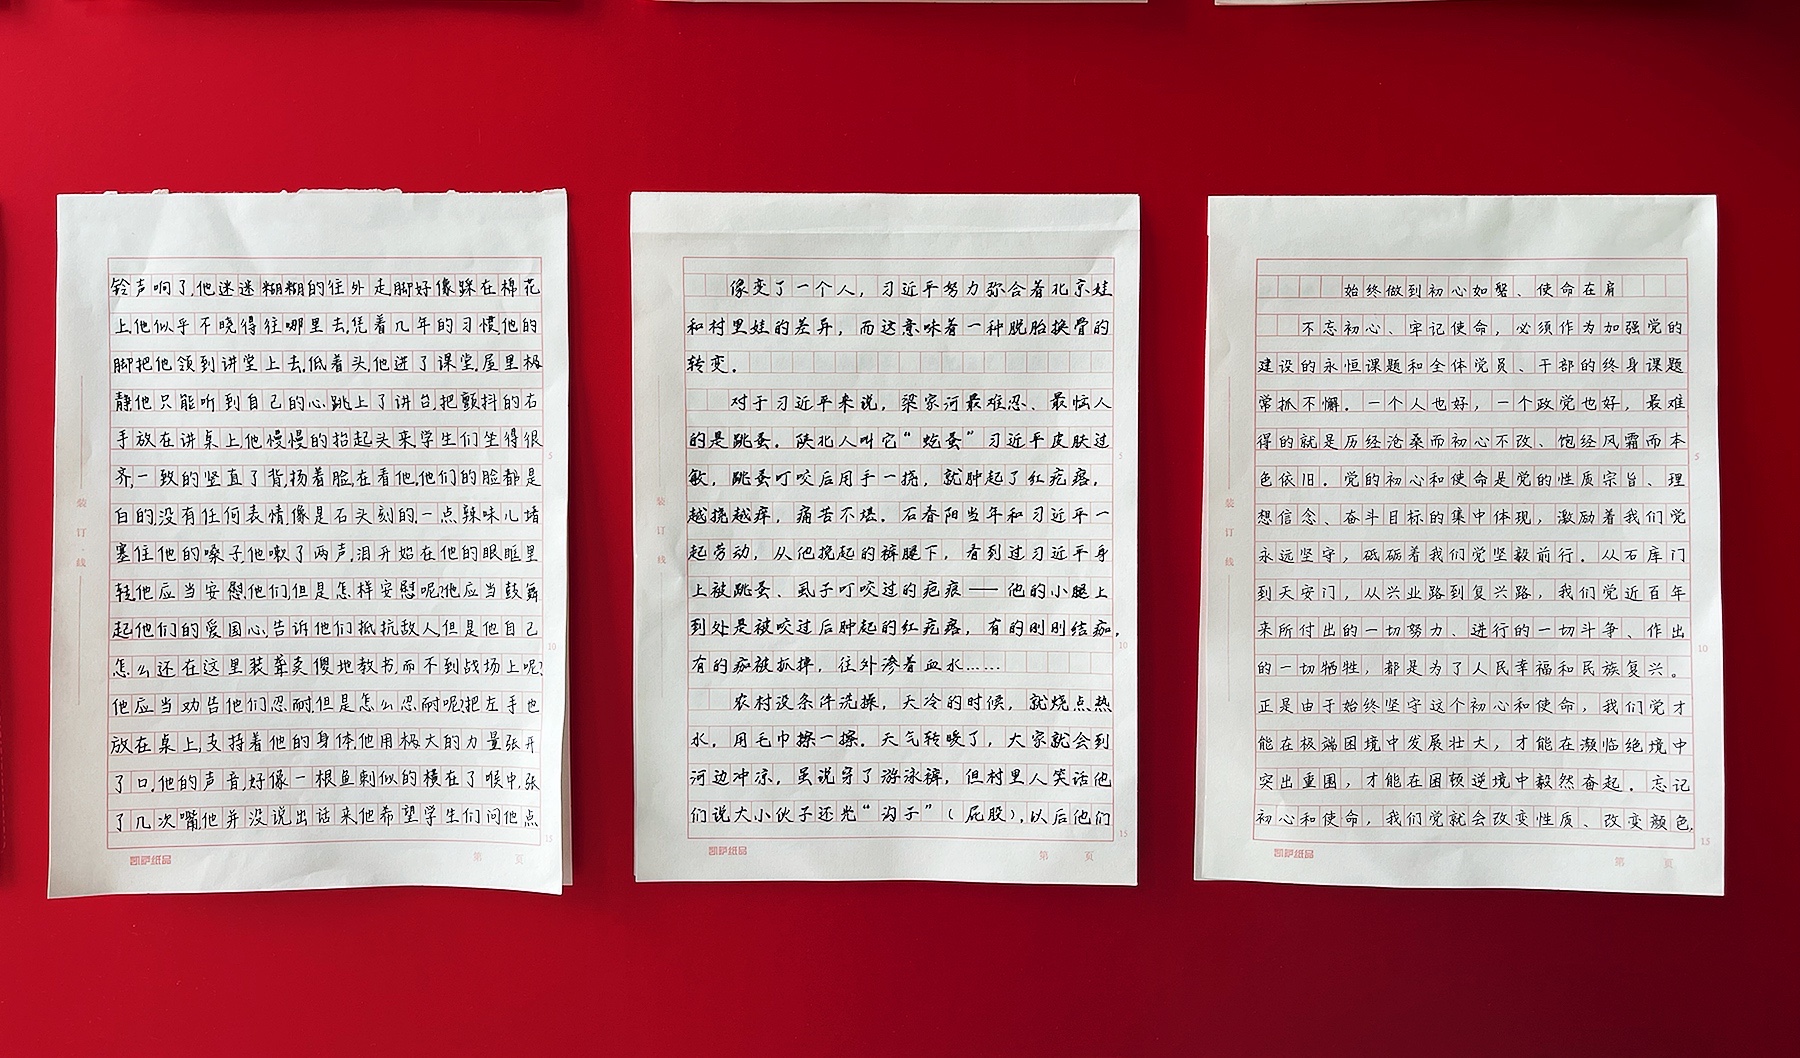 铃声响了,他迷迷糊糊的往外走,脚好像踩在棉花
上,他似乎不晓得往哪里去,凭着几年的习惯他的
脚把他领到讲堂上去,低着头,他进了课堂,屋里极
静,他只能听到自己的心跳,上了讲台把颤抖的右
手放在讲桌上,他慢慢的抬起头来,学生们坐得很
齐,一致的竖直了背,扬着脸,在看他,他们的脸都是
白的,没有任何表情,像是石头刻的,一点辣味儿堵
塞住他的嗓子,他嗽了两声,泪开始在他的眼眶里
转,他应当安慰他们,但是怎样安慰呢?他应当鼓舞
起他们的爱国心,告诉他们抵抗敌人,但是他自己
怎么还在这里装聋卖傻地教书,而不到战场上呢?
他应当劝告他们忍耐,但是怎么忍耐呢?把左手也
放在桌上,支持着他的身体,他用极大的力量张开
了口,他的声音,好像一根鱼刺似的横在了喉中,张
了几次嘴,他并没说出话来,他希望学生们问他点
装订线
5
10
15
凯萨纸品
第 页
像变了一个人，习近平努力弥合着北京娃
和村里娃的差异，而这意味着一种脱胎换骨的
转变。
对于习近平来说，梁家河最难忍、最恼人
的是跳蚤。陕北人叫它“虼蚤”习近平皮肤过
敏，跳蚤叮咬后用手一挠，就肿起了红疙瘩，
越挠越痒，痛苦不堪。石春阳当年和习近平一
起劳动，从他挽起的裤腿下，看到过习近平身
上被跳蚤、虱子叮咬过的疤痕——他的小腿上
到处是被咬过后肿起的红疙瘩，有的刚刚结痂，
有的痂被抓掉，往外渗着血水……
农村没条件洗澡，天冷的时候，就烧点热
水，用毛巾擦一擦。天气转暖了，大家就会到
河边冲凉，虽说穿了游泳裤，但村里人笑话他
们说大小伙子还光“沟子”（屁股），以后他们
装订线
5
10
15
凯萨纸品
第 页
始终做到初心如磐、使命在肩
不忘初心、牢记使命，必须作为加强党的
建设的永恒课题和全体党员、干部的终身课题
常抓不懈。一个人也好，一个政党也好，最难
得的就是历经沧桑而初心不改、饱经风霜而本
色依旧。党的初心和使命是党的性质宗旨、理
想信念、奋斗目标的集中体现，激励着我们党
永远坚守，砥砺着我们党坚毅前行。从石库门
到天安门，从兴业路到复兴路，我们党近百年
来所付出的一切努力、进行的一切斗争、作出
的一切牺牲，都是为了人民幸福和民族复兴。
正是由于始终坚守这个初心和使命，我们党才
能在极端困境中发展壮大，才能在濒临绝境中
突出重围，才能在困顿逆境中毅然奋起。忘记
初心和使命，我们党就会改变性质、改变颜色，
装订线
5
10
15
凯萨纸品
第 页